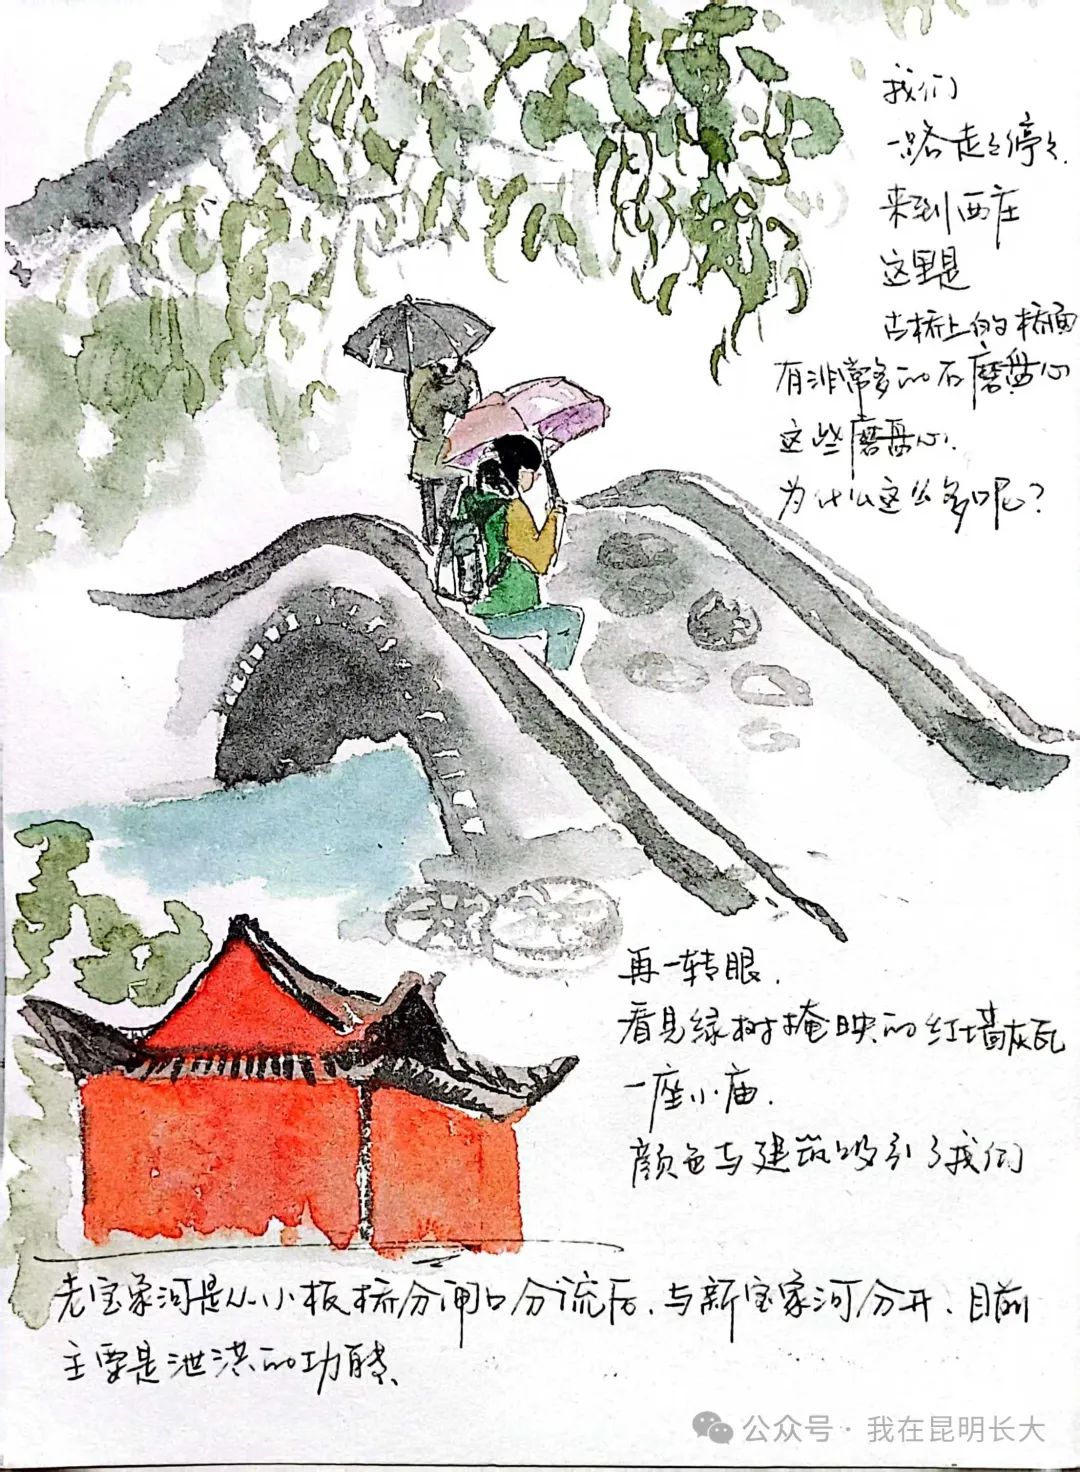 我们
一路走走停停.
来到西庄
这里是
古桥上的桥面
有非常多的石磨盘心
这些磨盘心.
为什么这么多呢?
再一转眼.
看见绿树掩映的红墙灰瓦
一座小庙.
颜色与建筑吸引了我们
老宝象河是从小板桥分闸口分流后.与新宝象河分开.目前
主要是泄洪的功能.
公众号·我在昆明长大